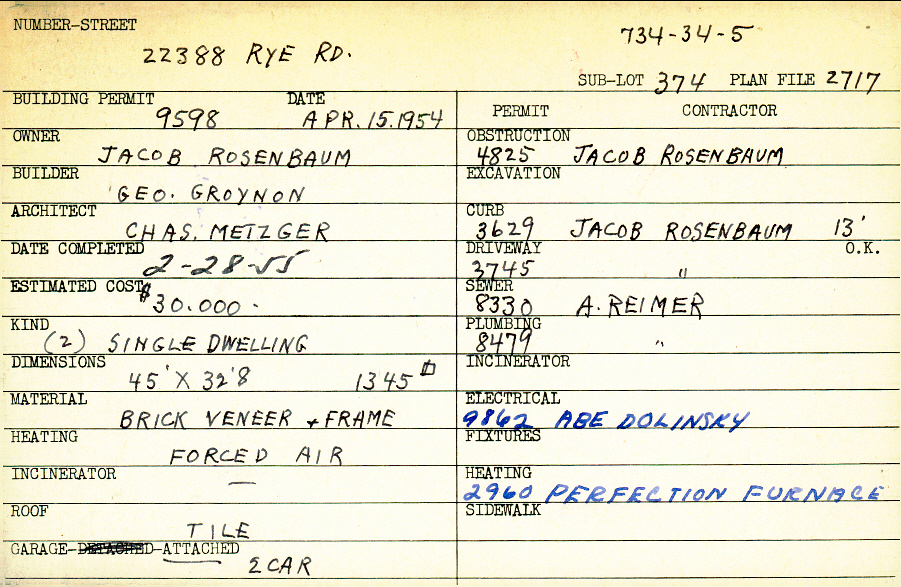 NUMBER-STREET
22388 RYE RD.
734-34-5
SUB-LOT 374 PLAN FILE 2717
BUILDING PERMIT DATE
9598 APR. 15. 1954
OWNER
JACOB ROSENBAUM
BUILDER
GEO. GROYNON
ARCHITECT
CHAS. METZGER
DATE COMPLETED
2-28-55
ESTIMATED COST
$30.000.
KIND
(2) SINGLE DWELLING
DIMENSIONS
45' X 32'8 1345 □
MATERIAL
BRICK VENEER + FRAME
HEATING
FORCED AIR
INCINERATOR
—
ROOF
TILE
GARAGE-DETACHED-ATTACHED
2 CAR
PERMIT CONTRACTOR
OBSTRUCTION
4825 JACOB ROSENBAUM
EXCAVATION
CURB
3629 JACOB ROSENBAUM 13'
DRIVEWAY O.K.
3745 "
SEWER
8330 A. REIMER
PLUMBING
8479 "
INCINERATOR
ELECTRICAL
9862 ABE DOLINSKY
FIXTURES
HEATING
2960 PERFECTION FURNACE
SIDEWALK